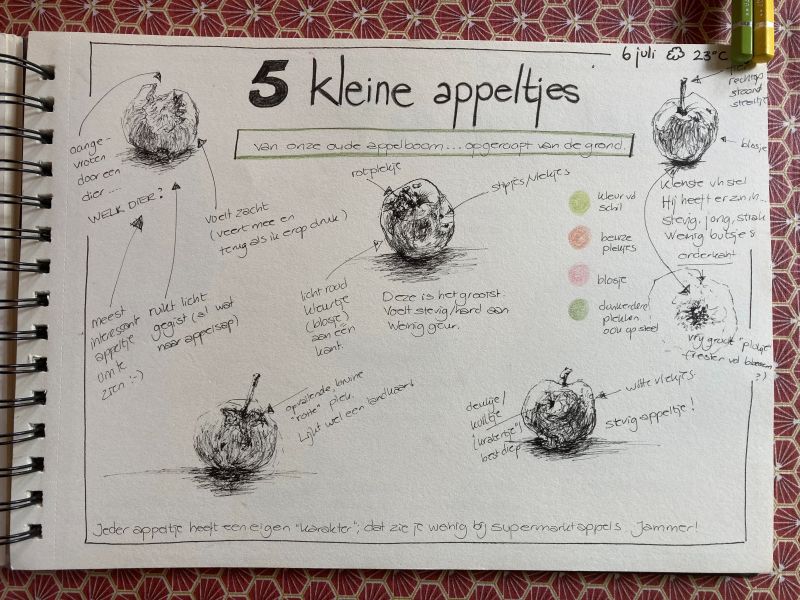 6 juli 23°C
5 kleine appeltjes
van onze oude appelboom... opgeraapt van de grond.
aange-
vreten
door een
dier....
WELK DIER?
voelt zacht
(veert mee en
terug als ik erop druk)
meest
interessant
appeltje
om te
zien :-)
ruikt licht
gegist (al wat
naar appelsap)
rot plekje
stipjes/vlekjes
licht rood
kleurtje
(blosje)
aan één
kant.
Deze is het grootst.
Voelt stevig/hard aan
Weinig geur.
kleur vd
schil
beurze
plekjes
blosje
donkerdere
plekken
ook op steel
rechtop
staand
steeltje
blosje
Kleinste vh stel
Hij heeft er zin in...
stevig, jong, strak
Weinig butsjes
onderkant
vrij groot "plukje"
(resten vd bloesem
?)
opvallende, bruine
"rotte" plek.
Lijkt wel een landkaart
deukje/
kuiltje
("kratertje")
best diep
witte vlekjes
stevig appeltje!
Ieder appeltje heeft een eigen "karakter"; dat zie je weinig bij supermarktappels. Jammer!